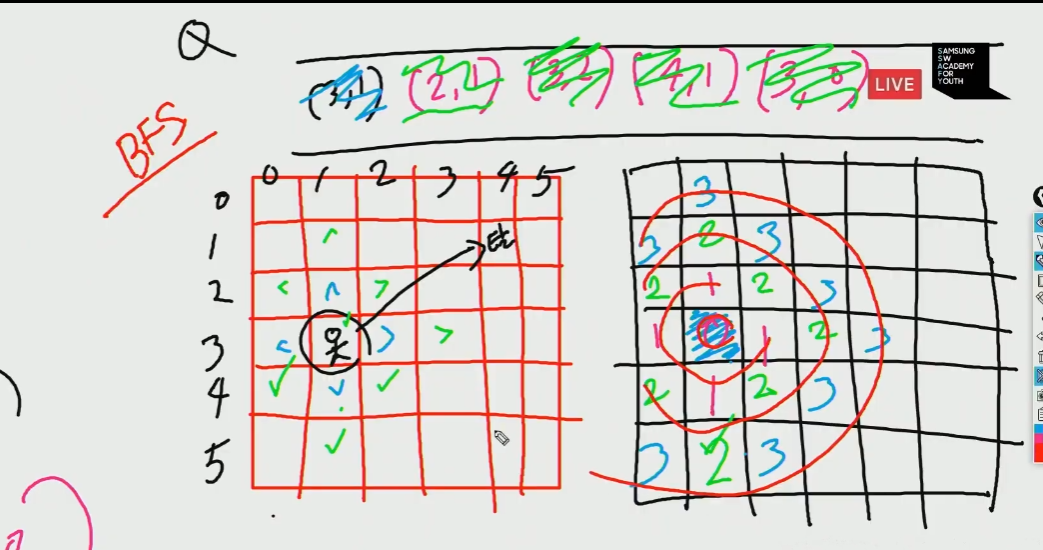 Q
(3,1) (2,1) (3,2) (4,1) (3,0)
LIVE
SAMSUNG
SW
ACADEMY
FOR
YOUTH
BFS
0 1 2 3 4 5
0
1
2
3
4
5
3
3 2 3
2 1 2 3
1 0 1 2 3
2 1 2 3
3 2 3